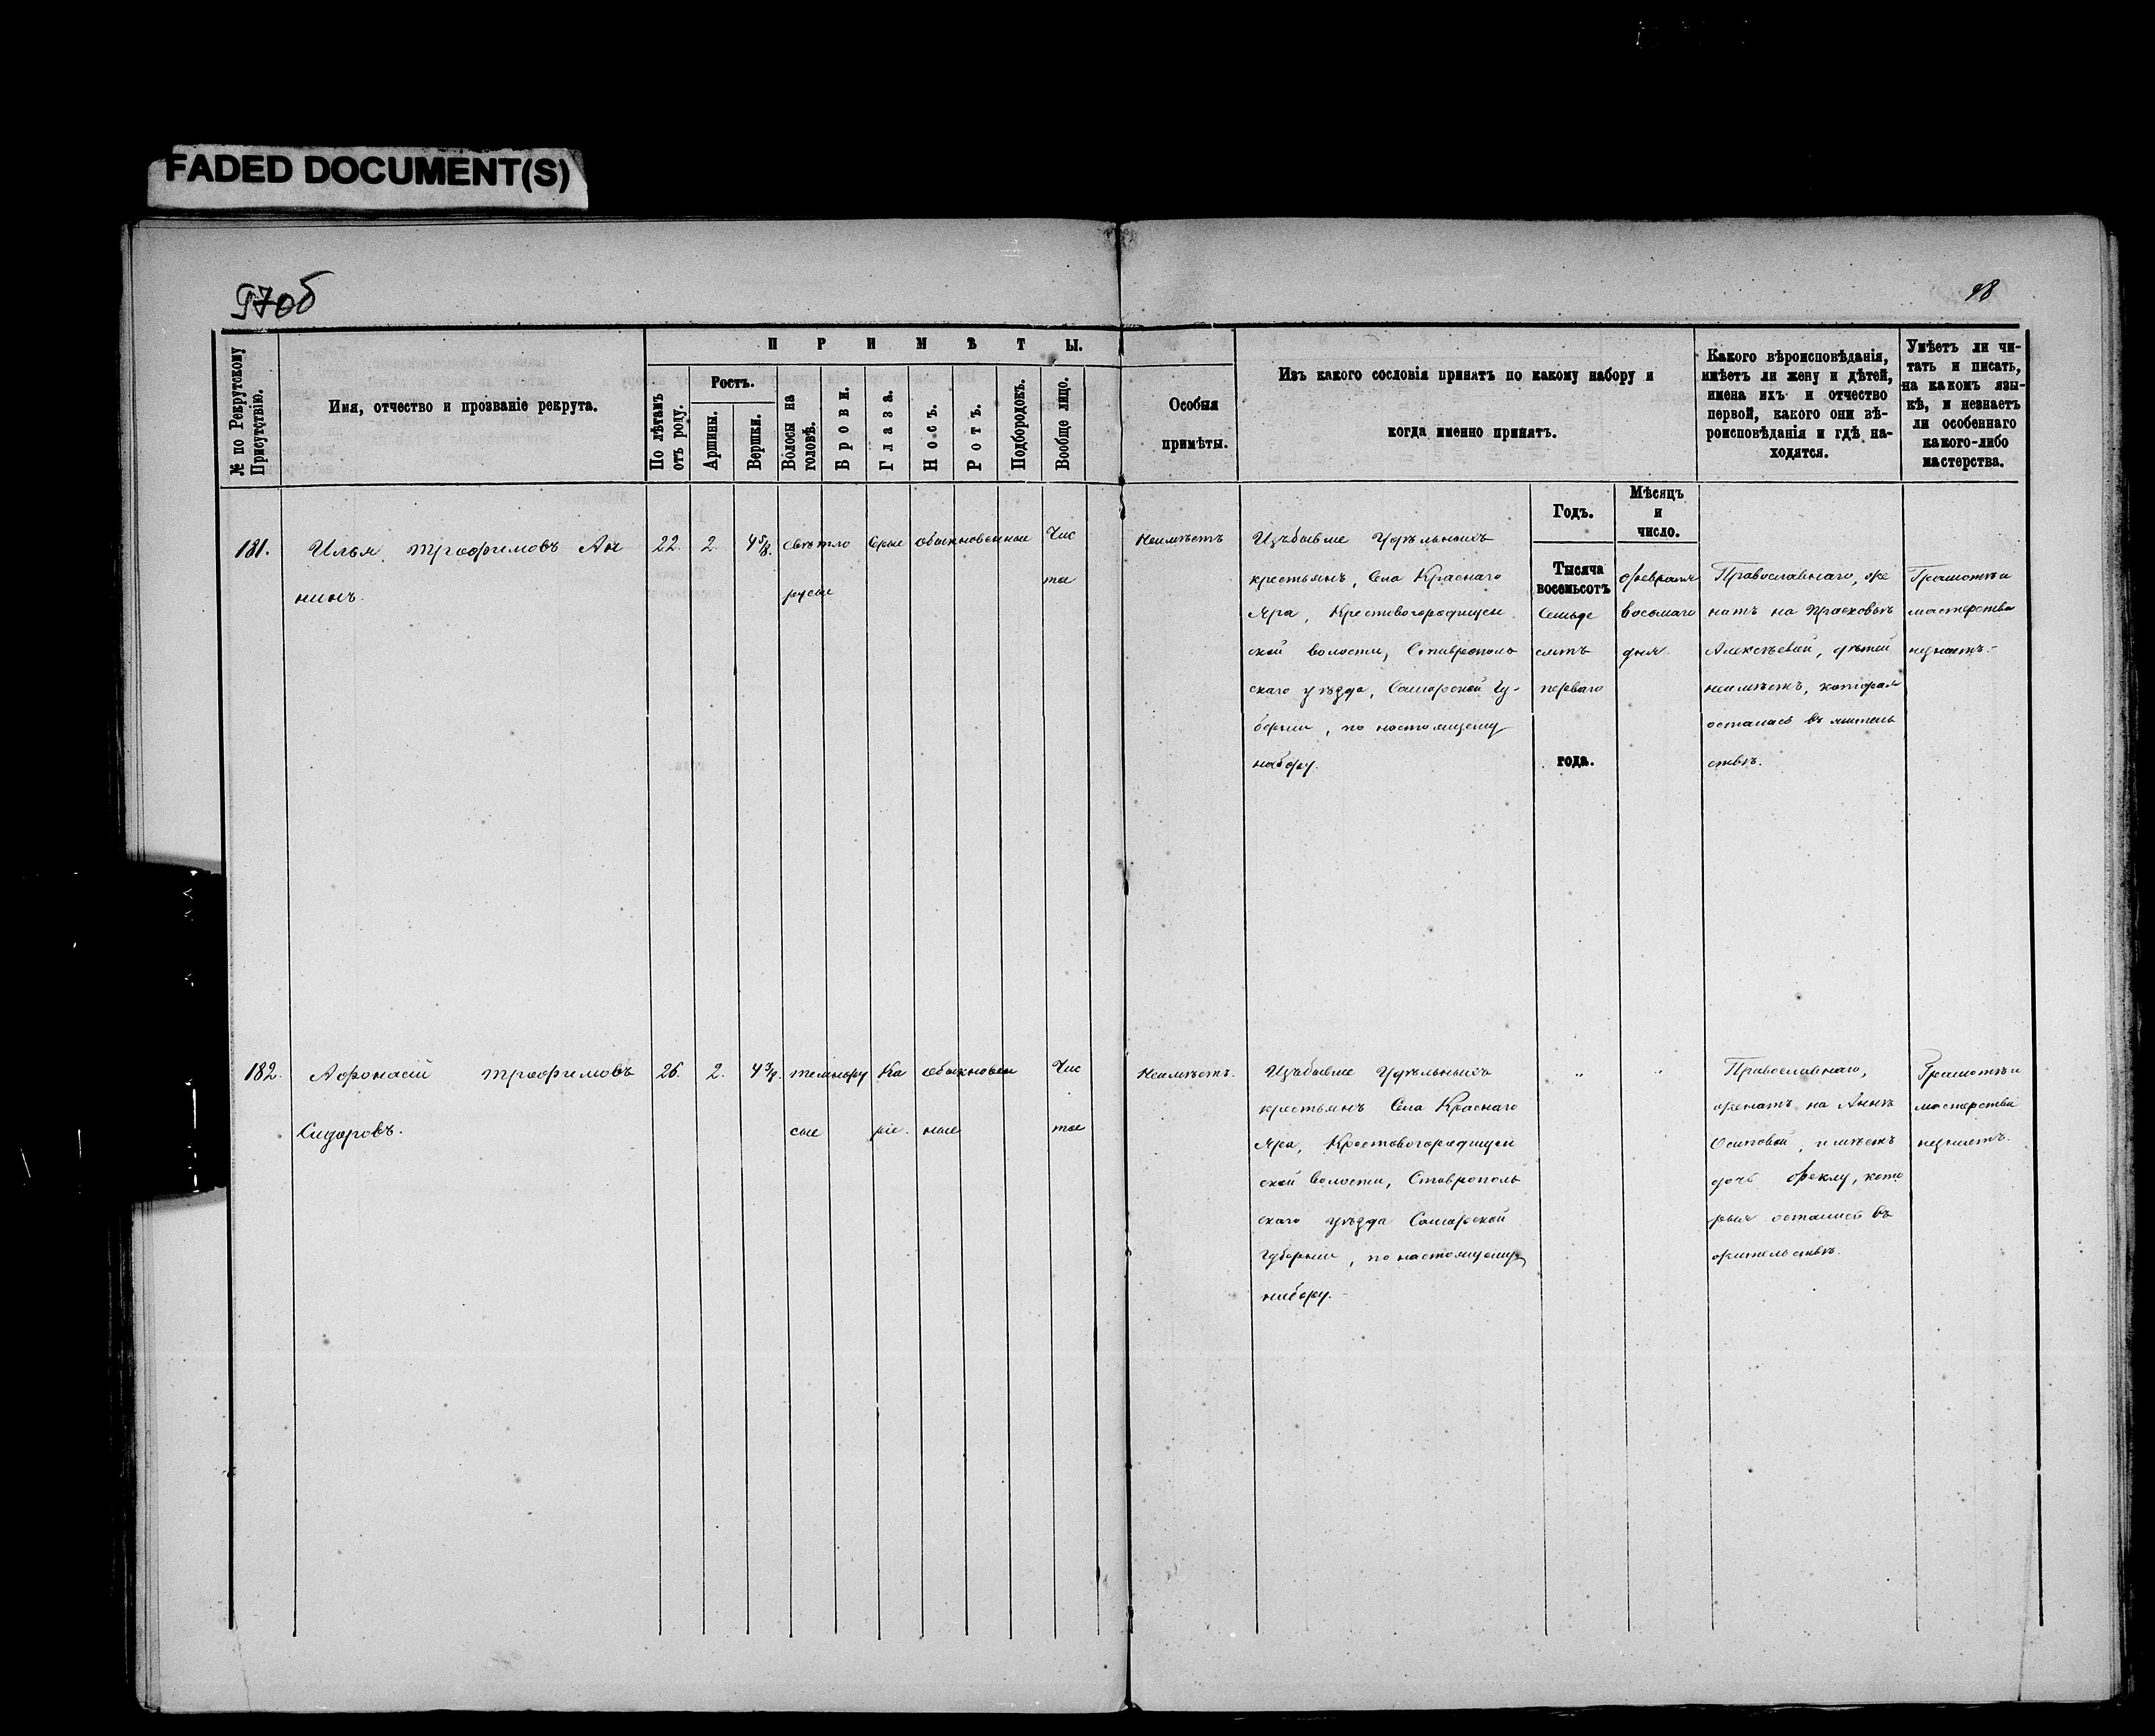 FADED DOCUMENT(S)
97об
98
№ по Рекрутскому Присутствію.
Имя, отчество и прозваніе рекрута.
ПРИМѢТЫ.
По лѣтамъ отъ роду.
Ростъ.
Аршины.
Вершки.
Волосы на головѣ.
Брови.
Глаза.
Носъ.
Ротъ.
Подбородокъ.
Вообще лицо.
Особыя
примѣты.
Изъ какого сословія принятъ по какому набору и
когда именно принятъ.
Годъ.
Мѣсяцъ
и
число.
Какого вѣроисповѣданія,
имѣетъ ли жену и дѣтей,
имена ихъ и отчество
первой, какого они вѣ-
роисповѣданія и гдѣ на-
ходятся.
Умѣетъ ли чи-
тать и писать,
на какомъ язы-
кѣ, и незнаетъ
ли особеннаго
какого-либо
мастерства.
181.
Илья Трофимовъ Ан
нинъ.
22.
2.
4 5/8.
свѣтло
русые
сѣрые
обыкновенные
Чис
тое
Неимѣетъ
Изъбывше Удѣльныхъ
крестьянъ, Села Краснаго
Яра, Крестовогородищен
ской волости, Ставрополь
скаго уѣзда, Самарской Гу-
берніи, по настоящему
набору.
Тысяча
восемьсотъ
Семьде
сятъ
перваго
года.
февраля
восьмаго
дня.
Православнаго, же
натъ на Прасковьѣ
Алексѣевой, дѣтей
неимѣетъ, которая
осталась въ житель
ствѣ.
Грамотѣ и
мастерства
незнаетъ.-
182.
Афонасій Трофимовъ
Сидоровъ.
26.
2.
4 3/8.
темнору
сые
Ка
ріе.
обыкновен
ные
Чис
тое
Неимѣетъ.
Изъбывше Удѣльныхъ
крестьянъ Села Краснаго
Яра, Крестовогородищен
ской волости, Ставрополь
скаго уѣзда Самарской
Губерніи, по настоящему
набору.-
"
"
Православнаго,
женатъ на Аннѣ
Осиповой, имѣетъ
дочь Феклу, кото
рыя остались въ
жительствѣ.
Грамотѣ и
мастерства
незнаетъ.